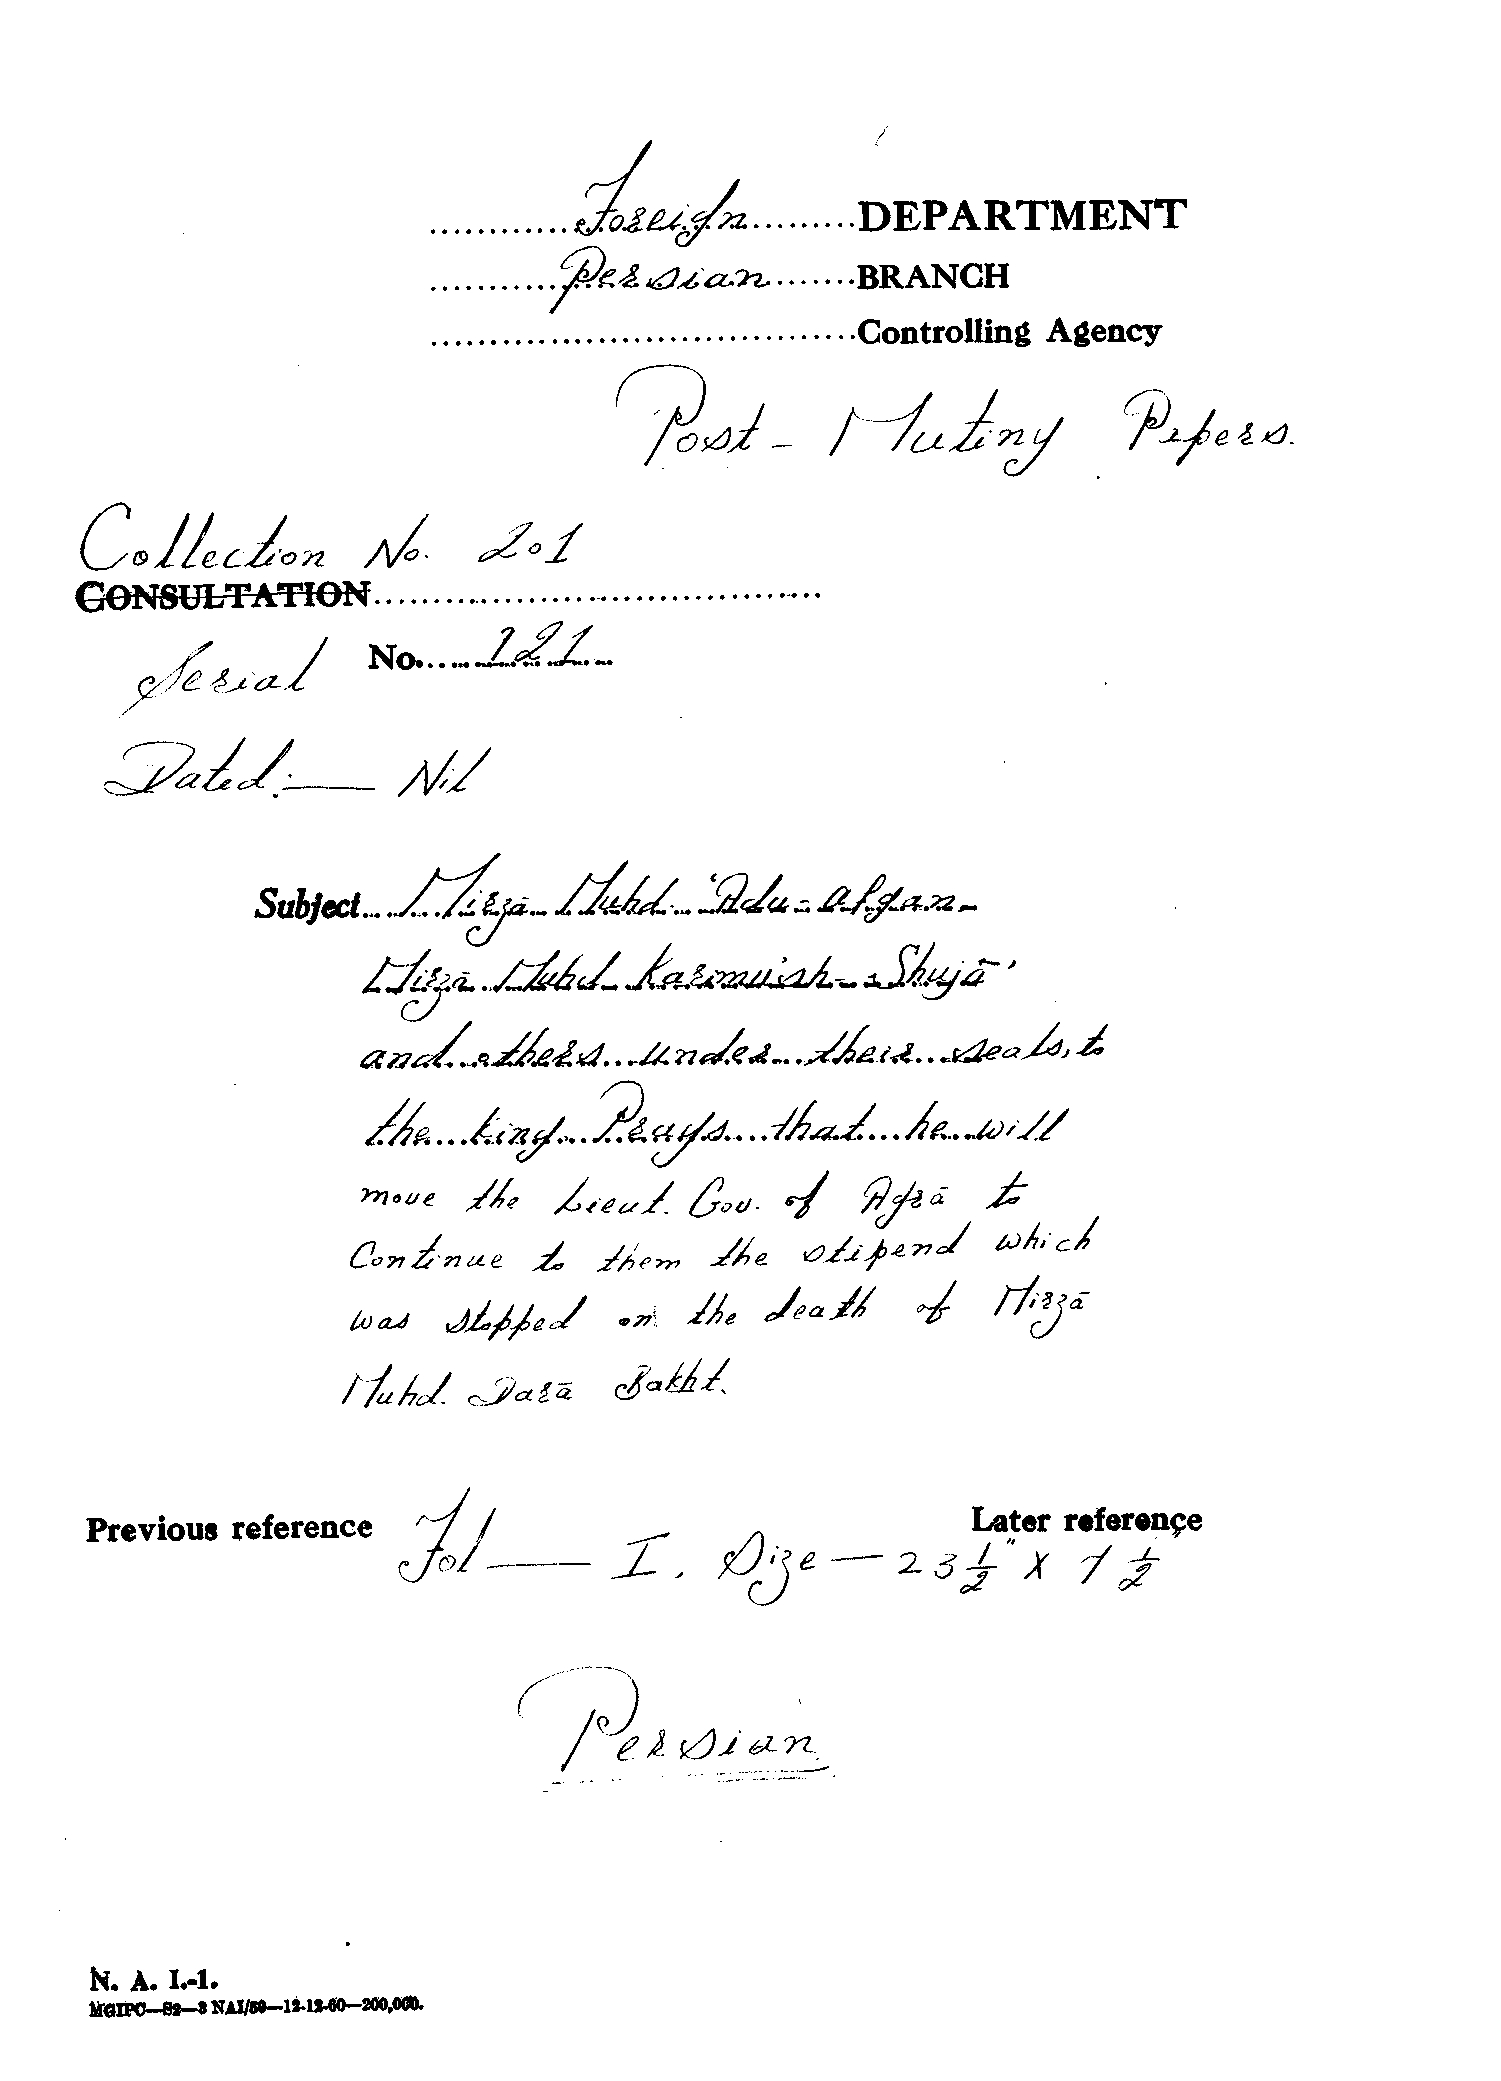 Foreign DEPARTMENT
Persian BRANCH
Controlling Agency
Post - Mutiny Pepers.
Collection No. 201
CONSULTATION
Serial No. 121
Dated:— Nil
Subject Mirzā Muhd. 'Adu-afgan
Mirzā Muhd Karimu'sh-Shujā'
and others under their seals, to
the king Prays that he will
move the Lieut. Gov. of Agrā to
Continue to them the stipend which
was stopped on the death of Mirzā
Muhd. Darā Bakht.
Previous reference Later reference
Fol — I. Size — 23 1/2" X 7 1/2
Persian
N. A. I.-1.
MGIPC—S2—3 NAI/59—12-12-60—200,000.